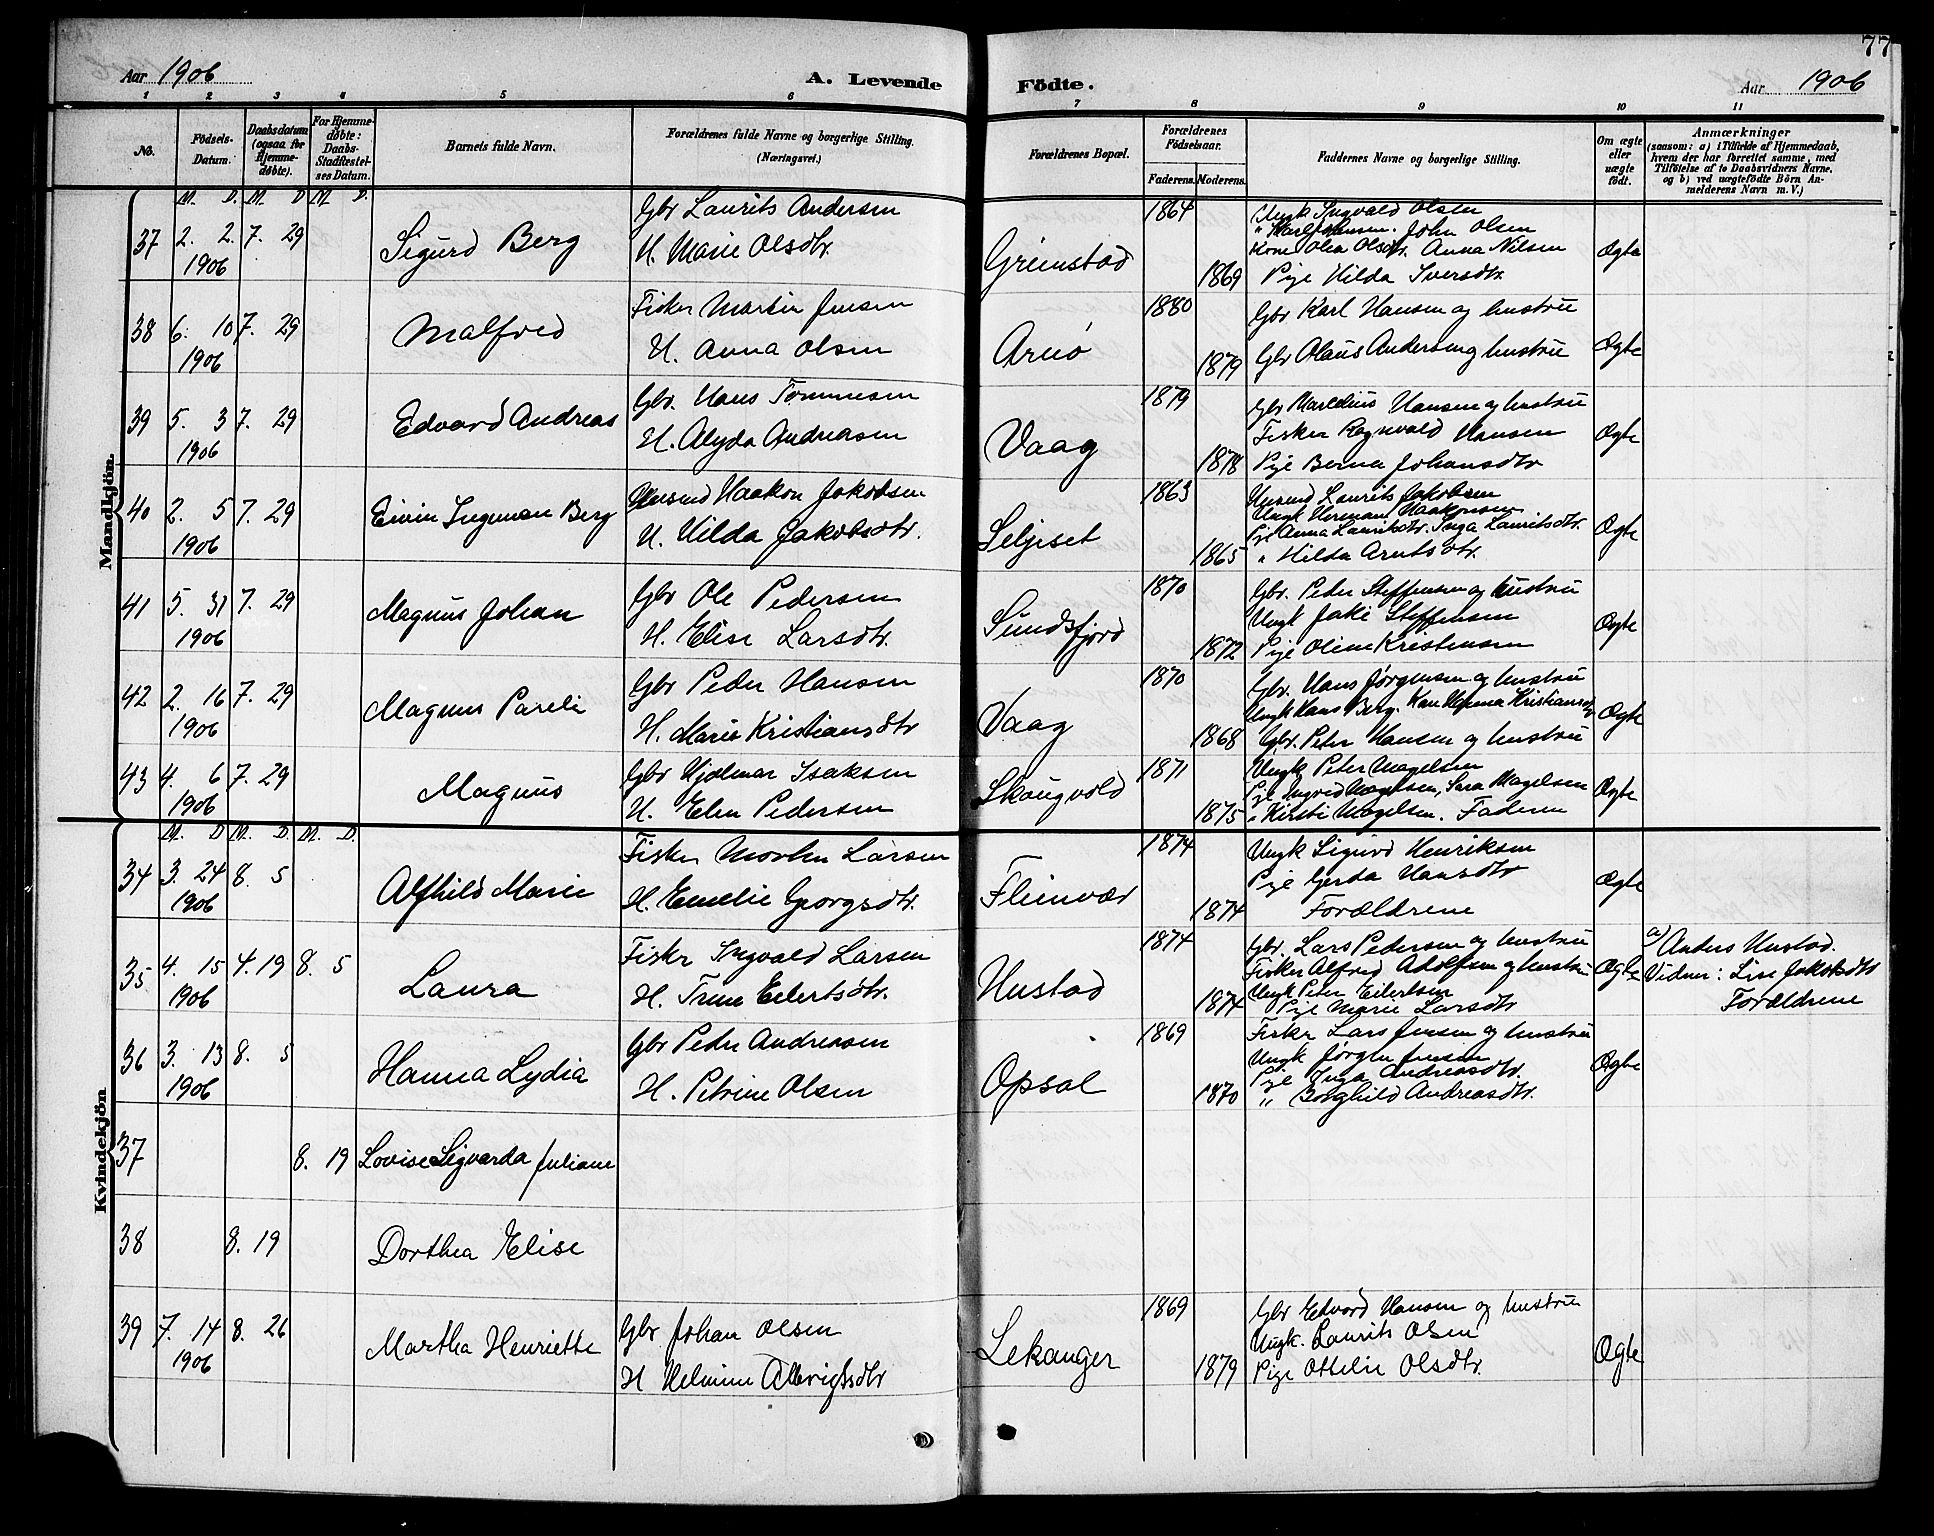 77
Aar 1906
A. Levende Födte.
Aar 1906
1 2 3 4 5 6 7 8 9 10 11
No.
Födsels-Datum.
Daabsdatum (ogsaa for Hjemmedøbte).
For Hjemmedøbte: Daabs-Stadfæstelses Datum.
Barnets fulde Navn.
Forældrenes fulde Navne og borgerlige Stilling. (Næringsvei.)
Forældrenes Bopæl.
Forældrenes Födselsaar.
Faderens. Moderens.
Faddernes Navne og borgerlige Stilling.
Om ægte eller uægte født.
Anmærkninger
(saasom: a) i Tilfælde af Hjemmedaab, hvem der har forrettet samme, med Tilføielse af to Daabsvidners Navne, og b) ved uægtefødte Börn Anmelderens Navn m. V.)
Mandkjön.
M. D. M. D M. D.
37 2. 2. 1906 7. 29 Sigurd Berg
Gbr Laurits Andersen
H. Marie Olsdtr.
Grimstad 1864 1869
Ungk Ingvald Olsen
" Karl Jensen. John Olsen
Kone Olea Olsdtr. Anna Nilsen
Pige Hilda Iversdtr.
Ægte
38 6. 10 1906 7. 29 Malfred
Fisker Martin Jensen
H. Anna Olsen
Arnø 1880 1879
Gbr Karl Hansen og hustru
Gbr Olaus Andersen og hustru
Ægte
39 5. 3 1906 7. 29 Edvard Andreas
Gbr. Hans Tommesen
H. Alyda Andreasen
Vaag 1879 1878
Gbr Marelius Hansen og hustru
Fisker Ragnvald Hansen
Pige Berna Johansdtr
Ægte
40 2. 5 1906 7. 29 Eivin Ingeman Berg
Husmd Haakon Jakobsen
H. Hilda Jakobsdtr.
Seljeset 1863 1865
Husmd Laurits Jakobsen
Ungk Herman Haakonsen
Pge Anna Lauritsdtr. Inga Lauritsdtr.
" Hilda Arntsdtr.
Ægte
41 5. 31 1906 7. 29 Magnus Johan
Gbr Ole Pedersen
H. Elise Larsdtr.
Sundsfjord 1870 1872
Gbr. Peder Steffensen og hustru
Ungk Jakè Steffensen
Pige Oline Kristensen
Ægte
42 2. 16 1906 7. 29 Magnus Pareli
Gbr Peder Hansen
H. Marie Kristiansdtr
Vaag 1870 1868
Gbr. Hans Jørgensen og hustru
Ungk Hans Berg. Kristiansdtr
Gbr. Peter Hansen og hustru
Ægte
43 4. 6 1906 7. 29 Magnus
Gbr Hjalmar Isaksen
H. Elen Pedersen
Skaugvold 1871 1875
Ungk Peter Magelsen
Pge Ingrid Magelsen, Sara Magelsen
" Kirsti Magelsen. Faderen
Ægte
Kvindekjön
M. D M. D. M. D.
34 3. 24 1906 8. 5 Alfhild Marie
Fisker Morten Larsen
H. Emelie Georgsdtr.
Fleinvær 1874 1874
Ungk Sigurd Henriksen
Pige Gerda Hansdtr
Forældrene
Ægte
35 4. 15 1906 4. 19 8. 5 Laura
Fisker Ingvald Larsen
H. Trine Eilertsdtr.
Hustad 1874 1874
Gbr. Lars Pedersen og hustru
Fisker Alfred Adolfsen og hustru
Ungk Peter Eilertsen
Pige Marie Larsdtr
Ægte
a) Anders Hustad.
Vidner: Lise Jakobsdtr
Forældrene
36 3. 13 1906 8. 5 Hanna Lydia
Gbr Peder Andreasen
H. Petrine Olsen
Opsal 1869 1870
Fisker Lars Jensen og hustru
Ungk Jørgen Jensen
Pige Inga Andreasdtr.
" Borghild Andreasdtr.
Ægte
37 8. 19 Lovise Sigvarda Juliane
38 8. 19 Dorthea Elise
39 7. 14 1906 8. 26 Martha Henriette
Gbr Johan Olsen
H Helmine Albrigtsdtr
Lekanger 1869 1879
Gbr Edvard Hansen og hustru
Ungk. Laurits Olsen
Pige Ottelie Olsdtr.
Ægte